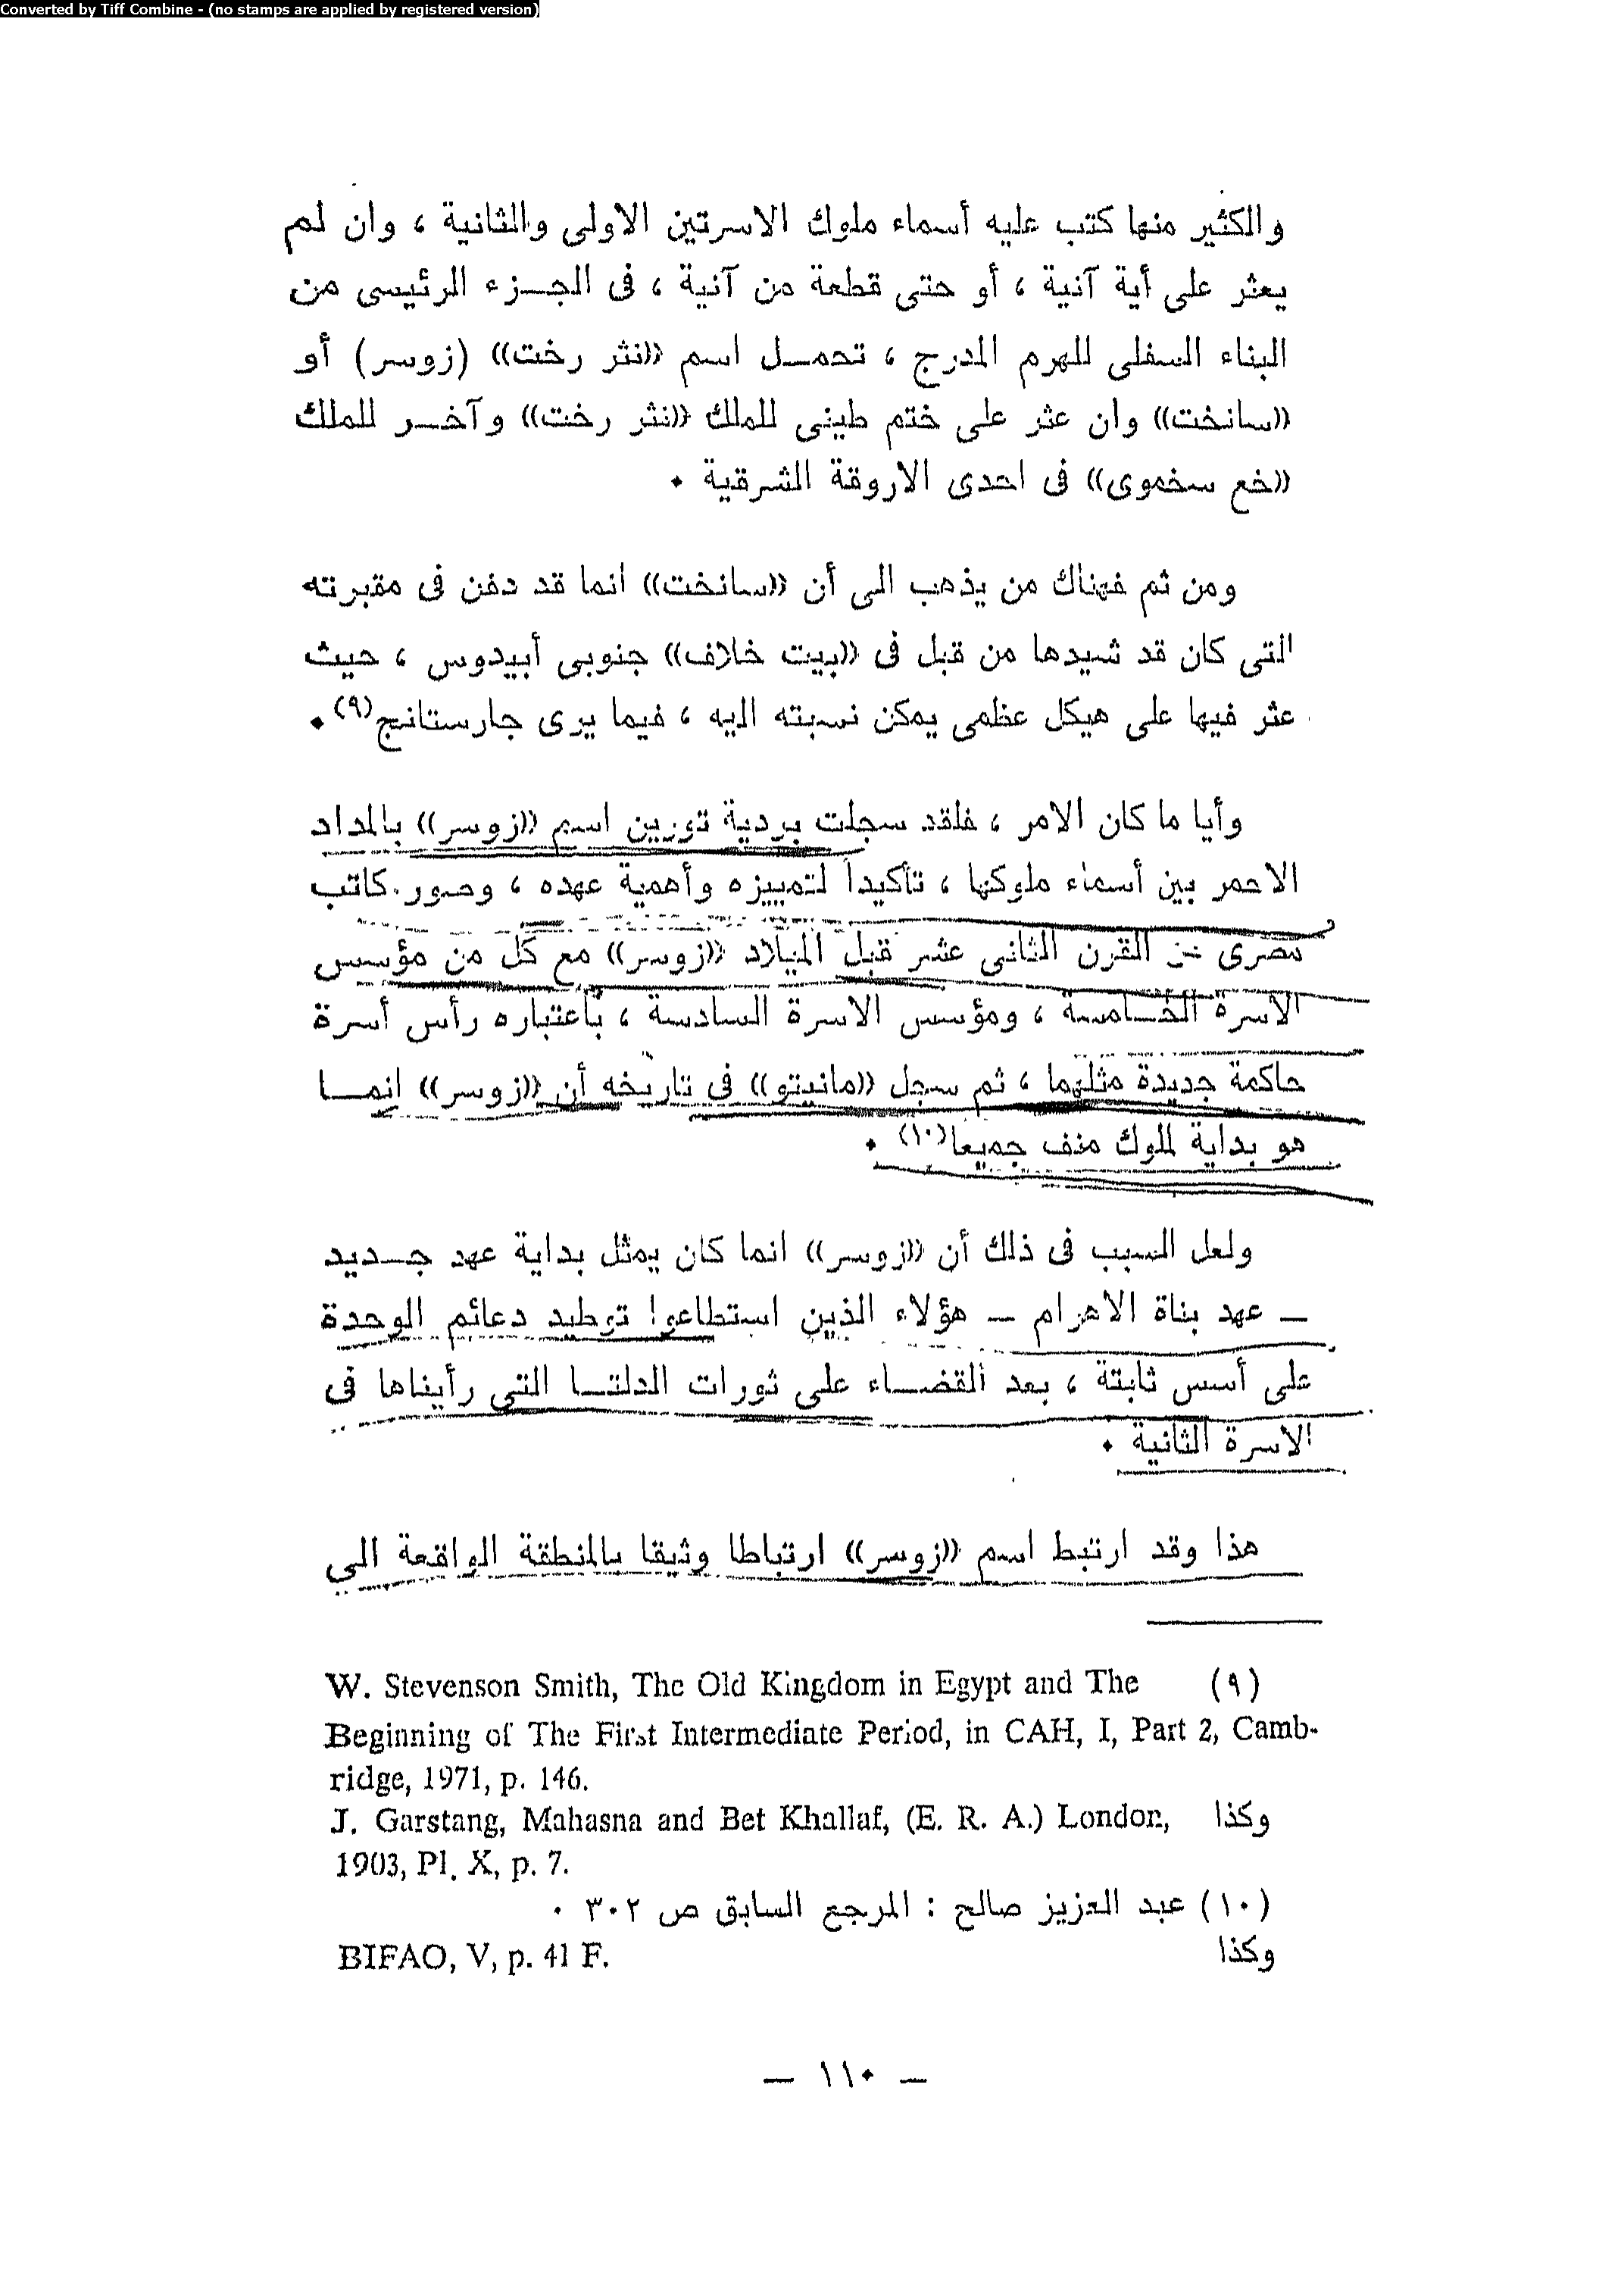 Converted by Tiff Combine - (no stamps are applied by registered version)
والكثير منها كتب عليه أسماء ملوك الاسرتين الاولى والثانية ، وان لم
يعثر على أية آنية ، أو حتى قطعة من آنية ، فى الجزء الرئيسى من
البناء السفلى للهرم المدرج ، تحمل اسم «نثر رخت» (زوسر) أو
«سانخت» وان عثر على ختم طينى للملك «نثر رخت» وآخر للملك
«خع سخموى» فى احدى الاروقة الشرقية ٠
ومن ثم فهناك من يذهب الى أن «سانخت» انما قد دفن فى مقبرته
التى كان قد شيدها من قبل فى «بيت خلاف» جنوبى أبيدوس ، حيث
عثر فيها على هيكل عظمى يمكن نسبته اليه ، فيما يرى جارستانج(٩) ٠
وأيا ما كان الامر ، فلقد سجلت بردية تورين اسم «زوسر» بالمداد
الاحمر بين أسماء ملوكها ، تأكيدا لتمييزه وأهمية عهده ، وصور كاتب
مصرى من القرن الثانى عشر قبل الميلاد «زوسر» مع كل من مؤسس
الاسرة الخامسة ، ومؤسس الاسرة السادسة ، باعتباره رأس أسرة
حاكمة جديدة مثلهما ، ثم سجل «مانيتو» فى تاريخه أن «زوسر» انما
هو بداية لملوك منف جميعا(١٠) ٠
ولعل السبب فى ذلك أن «زوسر» انما كان يمثل بداية عهد جديد
— عهد بناة الاهرام — هؤلاء الذين استطاعوا توطيد دعائم الوحدة
على أسس ثابتة ، بعد القضاء على ثورات الدلتا التى رأيناها فى
الاسرة الثانية ٠
هذا وقد ارتبط اسم «زوسر» ارتباطا وثيقا بالمنطقة الواقعة الى
(٩) W. Stevenson Smith, The Old Kingdom in Egypt and The
Beginning of The First Intermediate Period, in CAH, I, Part 2, Camb-
ridge, 1971, p. 146.
وكذا J. Garstang, Mahasna and Bet Khallaf, (E. R. A.) London,
1903, Pl. X, p. 7.
(١٠) عبد العزيز صالح : المرجع السابق ص ٣٠٢ ٠
وكذا BIFAO, V, p. 41 F.
— ١١٠ —